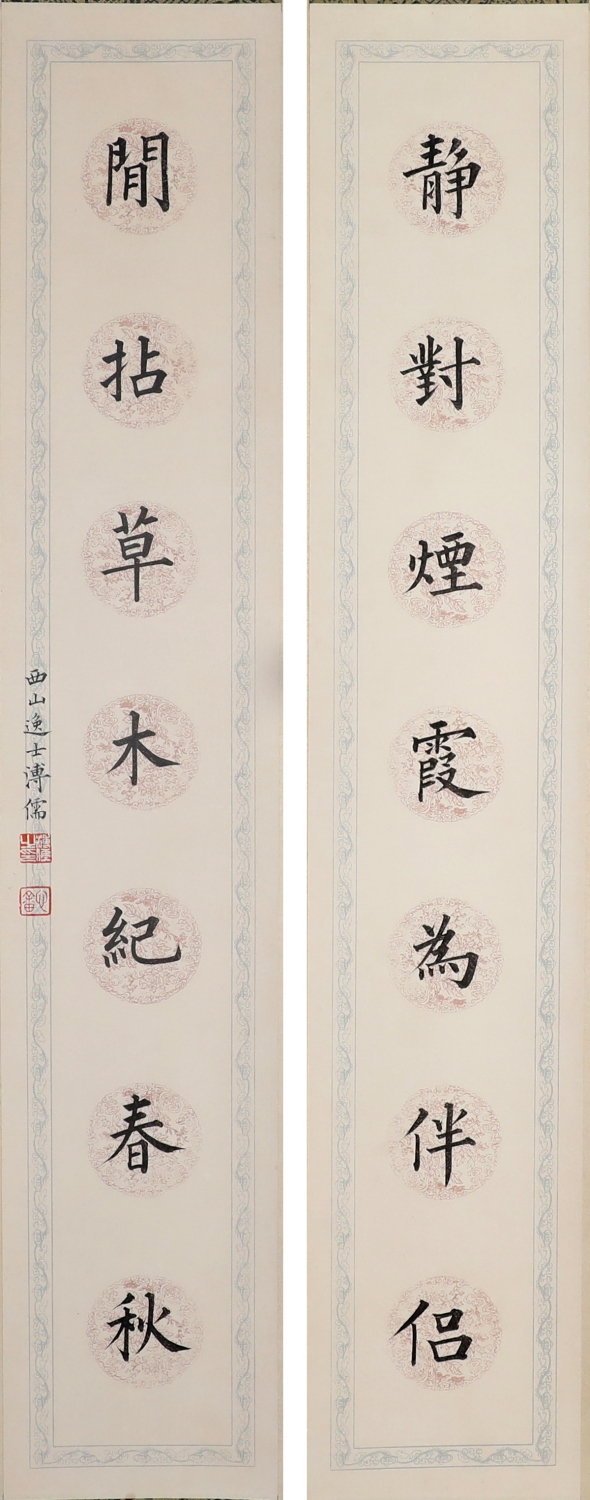 靜對煙霞為伴侶
閒拈草木紀春秋
西山逸士溥儒